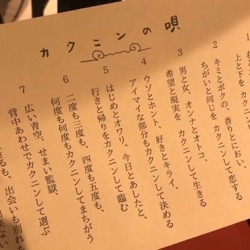 カクニンの唄
上と下をカクニンし
2 キミとボクの、香りとにおい、
ちがいと同じをカクニンして恋する
3 男と女、オンナとオトコ、
希望と現実をカクニンして生きる
4 ウソとホント、好きとキライ、
アイマイな部分もカクニンして決める
5 はじめとオワリ、今日とあしたと、
行きと帰りをカクニンして臨む
6 二度も三度も、四度も五度も、
何度も何度もカクニンしてまちがう
7 広い青空、せまい監獄、
背中あわせでカクニンして選ぶ
出会いも別れ